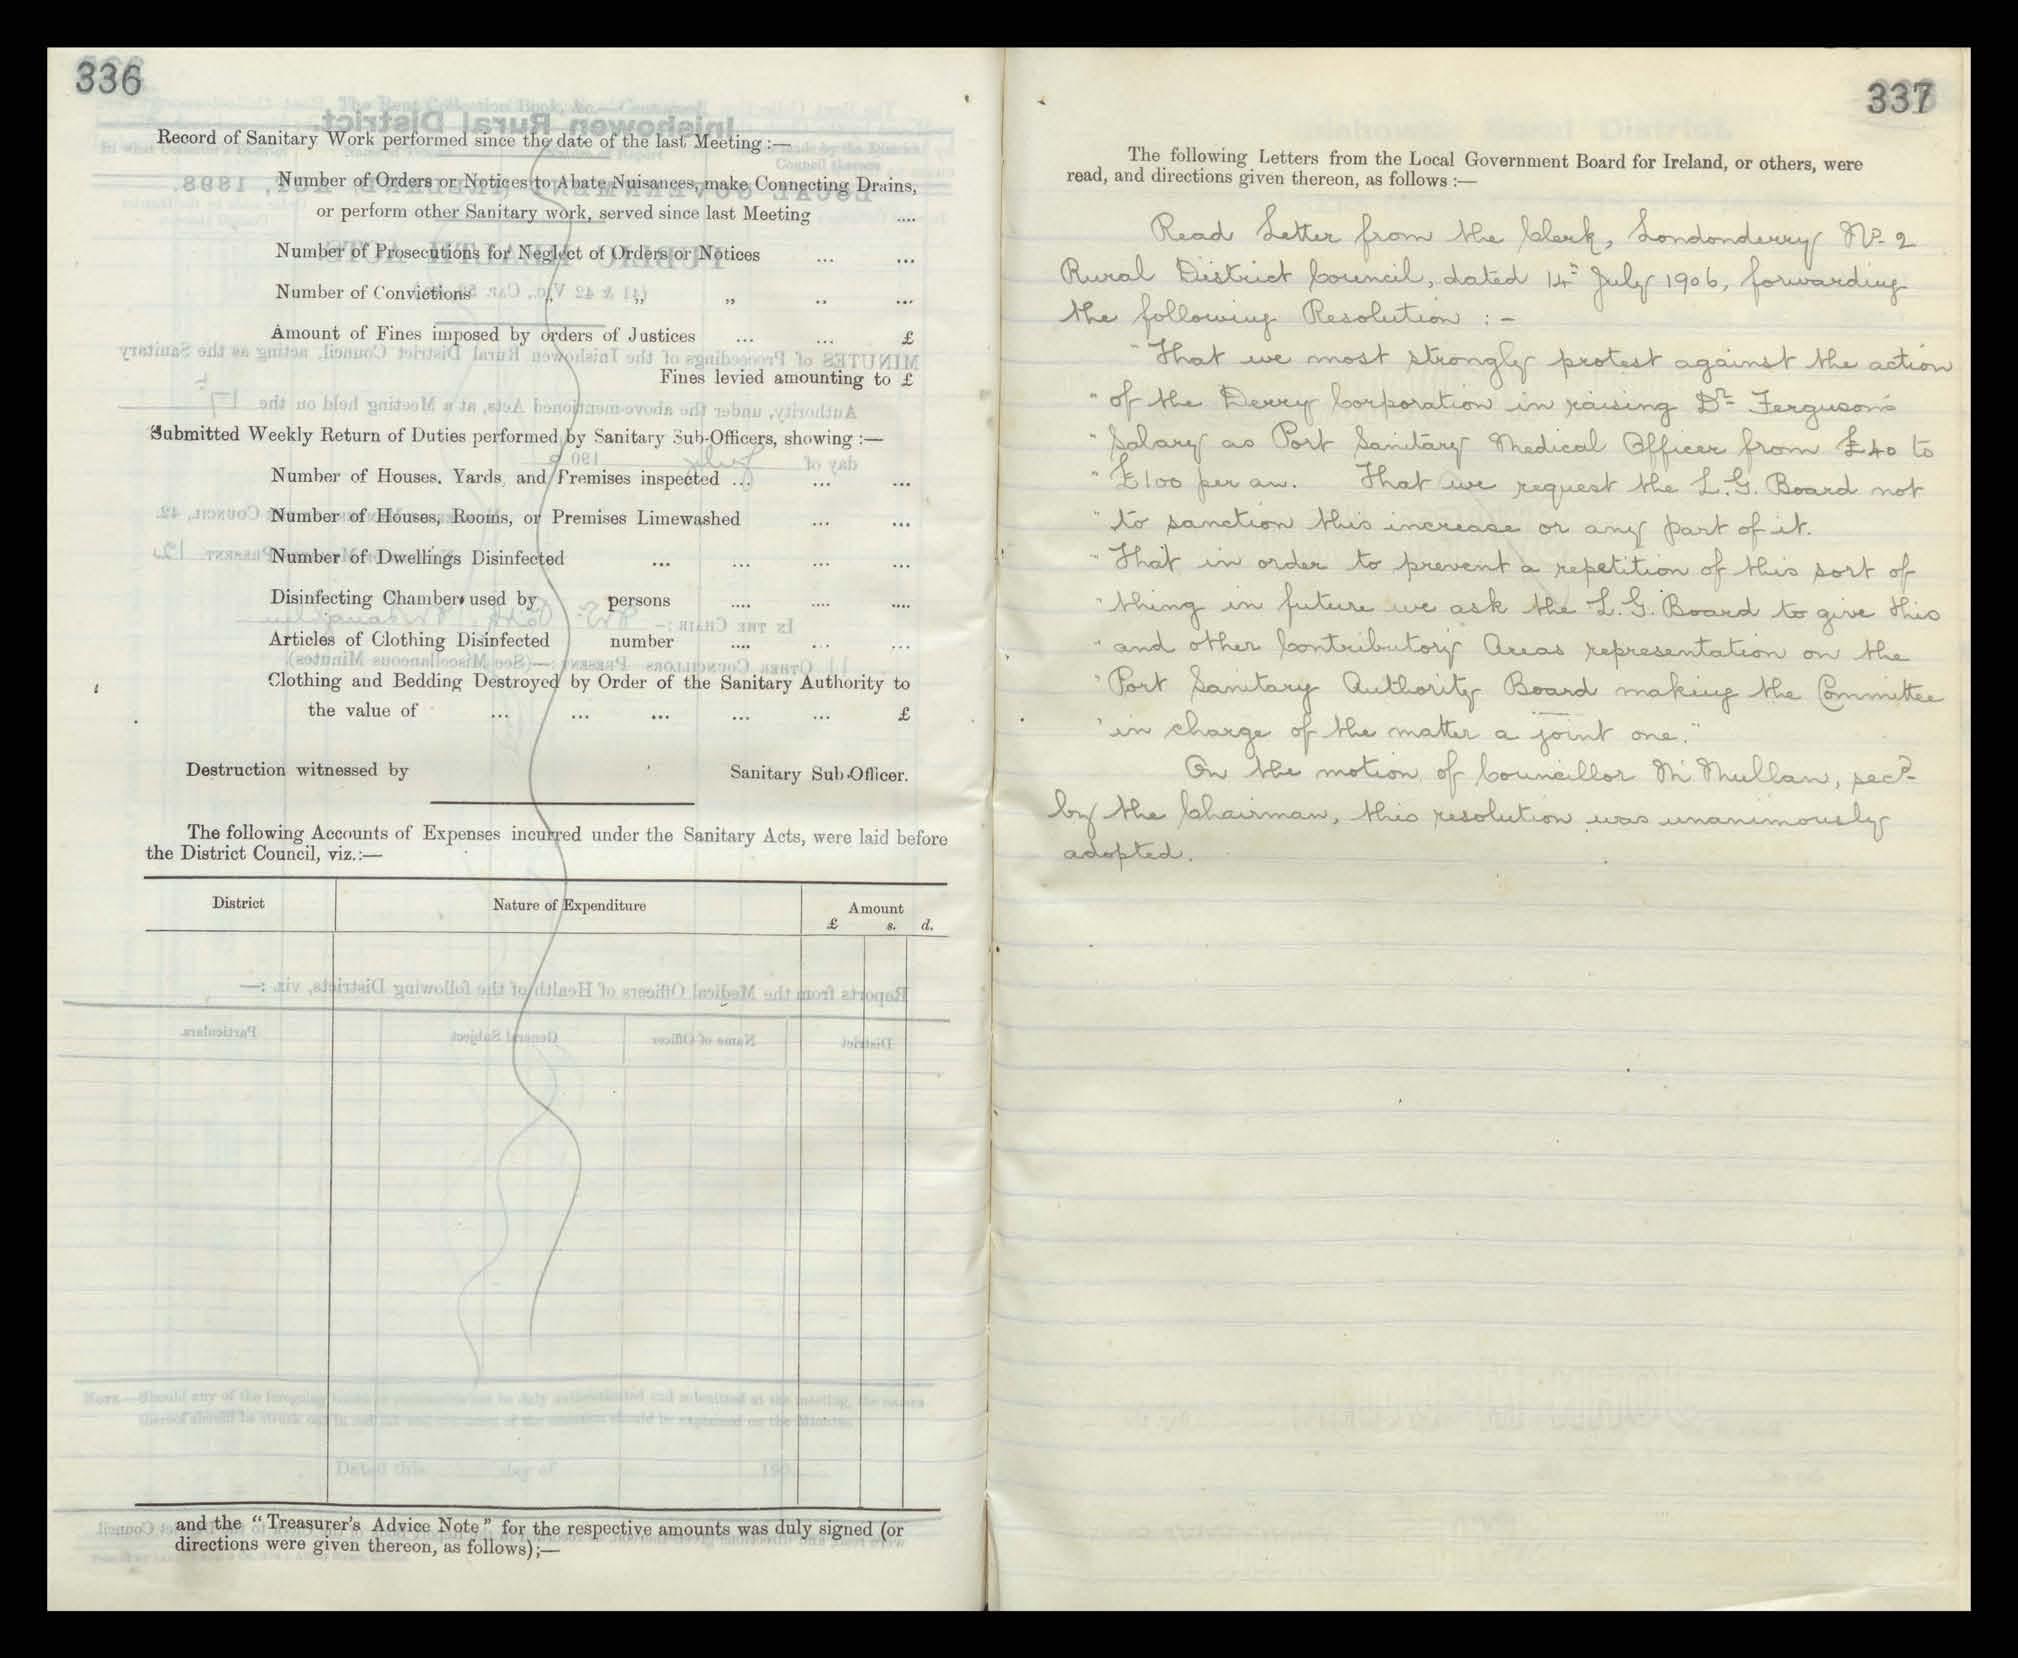 336
Record of Sanitary Work performed since the date of the last Meeting :—
Number of Orders or Notices to Abate Nuisances, make Connecting Drains,
or perform other Sanitary work, served since last Meeting ....
Number of Prosecutions for Neglect of Orders or Notices ... ...
Number of Convictions „ „ „ .. ...
Amount of Fines imposed by orders of Justices ... ... £
Fines levied amounting to £
Submitted Weekly Return of Duties performed by Sanitary Sub-Officers, showing :—
Number of Houses, Yards, and Premises inspected ... ... ...
Number of Houses, Rooms, or Premises Limewashed ... ...
Number of Dwellings Disinfected ... ... ... ...
Disinfecting Chamber used by persons .... .... ....
Articles of Clothing Disinfected number .... ... ...
Clothing and Bedding Destroyed by Order of the Sanitary Authority to
the value of ... ... ... ... ... £
Destruction witnessed by Sanitary Sub-Officer.
The following Accounts of Expenses incurred under the Sanitary Acts, were laid before
the District Council, viz.:—
District Nature of Expenditure Amount
£ s. d.
and the “Treasurer's Advice Note” for the respective amounts was duly signed (or
directions were given thereon, as follows);—
337
The following Letters from the Local Government Board for Ireland, or others, were
read, and directions given thereon, as follows :—
Read Letter from the Clerk, Londonderry No. 2
Rural District Council, dated 14th July 1906, forwarding
the following Resolution : -
"That we most strongly protest against the action
" of the Derry Corporation in raising Dr. Ferguson's
" Salary as Port Sanitary Medical Officer from £40 to
" £100 per an. That we request the L.G. Board not
" to sanction this increase or any part of it.
" That in order to prevent a repetition of this sort of
" thing in future we ask the L.G. Board to give this
" and other Contributory Areas representation on the
" Port Sanitary Authority Board making the Committee
" in charge of the matter a joint one."
On the motion of Councillor McMullan, secd.
by the Chairman, this resolution was unanimously
adopted.